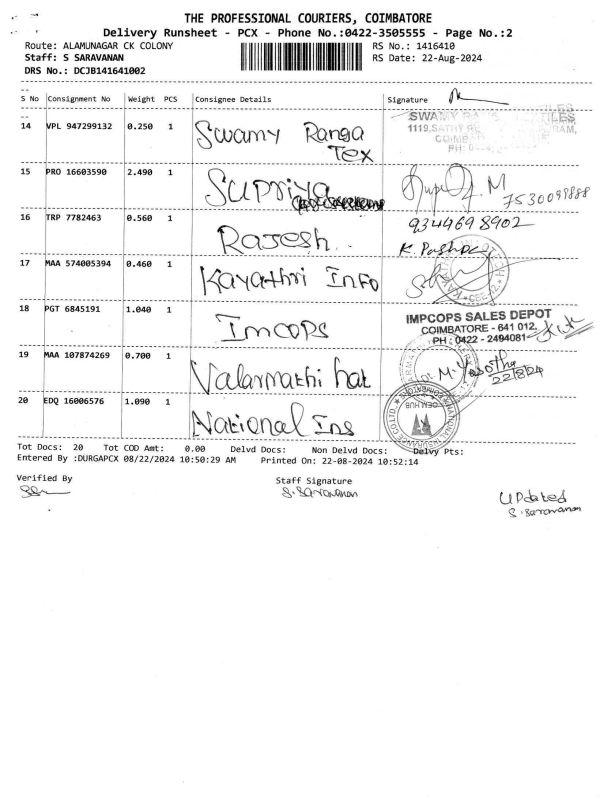 THE PROFESSIONAL COURIERS, COIMBATORE
Delivery Runsheet - PCX - Phone No.:0422-3505555 - Page No.:2
Route: ALAMUNAGAR CK COLONY RS No.: 1416410
Staff: S SARAVANAN RS Date: 22-Aug-2024
DRS No.: DCJB141641002
S No Consignment No Weight PCS Consignee Details Signature
14 VPL 947299132 0.250 1 Swamy Ranga Tex
SWAMY
15 PRO 16603590 2.490 1 Supriya M
7530099888
16 TRP 7782463 0.560 1 Rajesh
9344698902
17 MAA 574005394 0.460 1 Kayathri Info
18 PGT 6845191 1.040 1 Imcops
IMPCOPS SALES DEPOT
COIMBATORE - 641 012.
PH : 0422 - 2494081
19 MAA 107874269 0.700 1 Valarmathi hat
22/8/24
20 EDQ 16006576 1.090 1 National Ins
Tot Docs: 20 Tot COD Amt: 0.00 Delvd Docs: Non Delvd Docs: Delvy Pts:
Entered By :DURGAPCX 08/22/2024 10:50:29 AM Printed On: 22-08-2024 10:52:14
Verified By Staff Signature
S. Saravanan
Updated
S. Saravanan